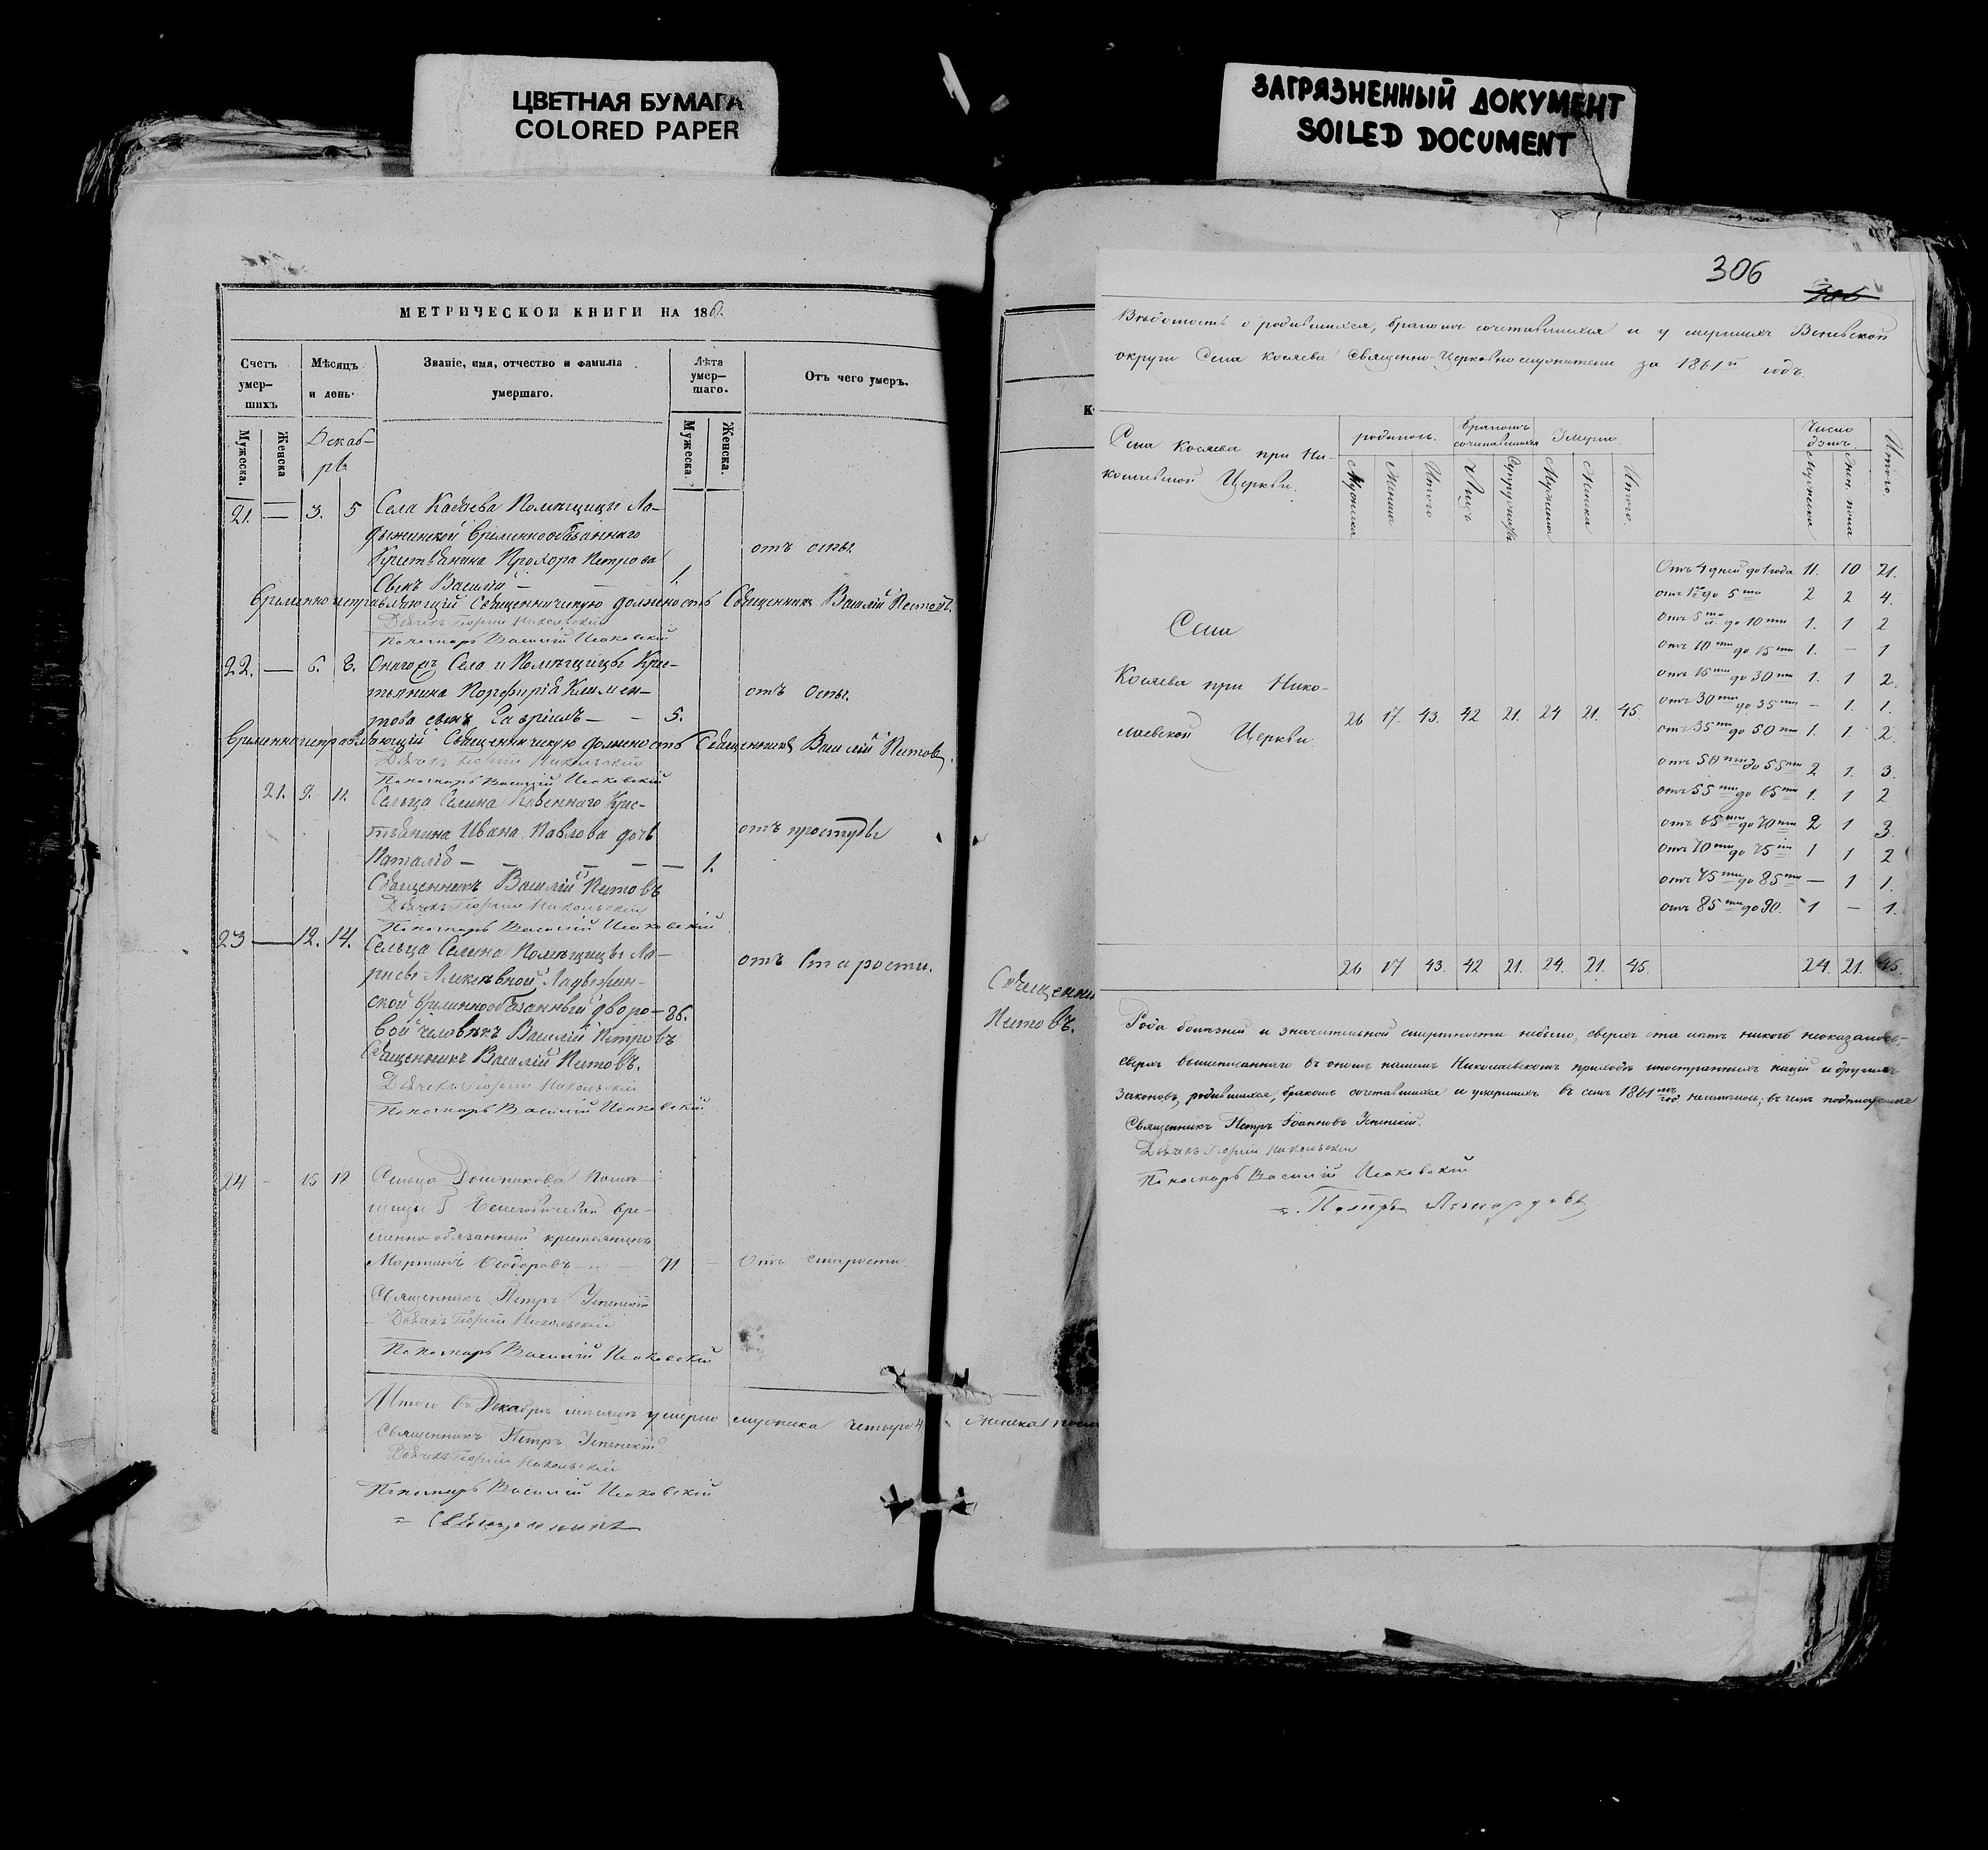 ЦВЕТНАЯ БУМАГА
COLORED PAPER
ЗАГРЯЗНЕННЫЙ ДОКУМЕНТ
SOILED DOCUMENT
МЕТРИЧЕСКОЙ КНИГИ НА 1861.
Счетъ умер-шихъ
Мѣсяцъ и день.
Званіе, имя, отчество и фамилія умершаго.
Лѣта умер-шаго.
Отъ чего умеръ.
Мужеска.
Женска
Мужеска.
Женска.
Декаб-
рь
21. — 3. 5 Села Косяева Помѣщицы Ла-
дыжинской временнообязаннаго
Крестьянина Прохора Петрова
отъ оспы.
Сынъ Василій — 1.
Временно исправляющій Священническую должность Священникъ Василій Питовъ.
Дьячекъ Георгій Никольскій
Пономарь Василій Исаковскій
22. — 6. 8. Онагожъ Села и Помѣщицы Крес-
тьянина Порфирія Климен-
отъ оспы.
това сынъ Гавріилъ — 5.
Временно исправляющій Священническую должность Священникъ Василій Питовъ.
Дьячекъ Георгій Никольскій
Пономарь Василій Исаковскій
21. 9. 11. Сельца Селина Крес-
тьянина Ивана Павлова дочь
отъ простуды
Наталія — — — — 1.
Священникъ Василій Питовъ
Дьячекъ Георгій Никольскій
Пономарь Василій Исаковскій
23 — 12. 14. Сельца Селина Помѣщицы Ла-
рисы Ладыжин-
отъ Старости.
ской временнообязанный дворо- 86.
вой человѣкъ Василій Петровъ
Священникъ Василій Питовъ.
Дьячекъ Георгій Никольскій
Пономарь Василій Исаковскій
24 — 15 18 Сельца Помѣ-
щицы вре-
менно обязанный крестьянинъ
Мартинъ Ѳеодоровъ — 71 — Отъ старости.
Священникъ Петръ Успенскій
Дьячекъ Георгій Никольскій
Пономарь Василій Исаковскій
Итого въ Декабрѣ мѣсяцѣ умерло мужеска четыре 4. женска
Священникъ Петръ Успенскій
Дьячекъ Георгій Никольскій
Пономарь Василій Исаковскій
Священни
Питовъ.
306
Вѣдомость о родившихся, бракомъ сочетавшихся и умершихъ Веневской
округи Села Косяева Священно-Церковнослужители за 1861й годъ.
Села Косяева при Ни-
колаевской Церкви.
родилось.
Бракомъ сочетавшихся
Умерло
Число душъ
Итого.
Мужеска
Женска
Итого
Лицъ
Супружествъ
Мужеска
Женска
Итого.
Мужеска
Жен. пола
Отъ 4 дней до 1 года 11. 10 21.
отъ 1го до 5ти 2 2 4.
отъ 5ти до 10ти 1. 1 2
отъ 10ти до 15ти 1. — 1
отъ 15ти до 30ти 1. 1 2.
отъ 30ти до 35ти — 1. 1.
отъ 35ти до 50ти 1. 1. 2
отъ 50ти до 55ти 2 1. 3.
отъ 55ти до 65ти 1. 1 2
отъ 65ти до 70ти 2 1 3.
отъ 70ти до 75ти 1 1 2
отъ 75ти до 85ти — 1 1.
отъ 85ти до 90. 1 — 1.
Села
Косяева при Нико-
лаевской Церкви.
26 17. 43. 42 21. 24 21. 45.
26 17 43. 42 21. 24. 21. 45. 24. 21. 45.
Рода болѣзней и значительной смертности небыло, сверхъ ста лѣтъ никого неоказалось,
сверхъ вышеписаннаго въ ономъ нашемъ Николаевскомъ приходѣ иностранныхъ націй и другихъ
Законовъ, родившихся, бракомъ сочетавшихся и умершихъ въ семъ 1861мъ год неимѣлось; въ чемъ подписуемся
Священникъ Петръ Іоанновъ Успенскій.
Дьячекъ Георгій Никольскій
Пономарь Василій Исаковскій